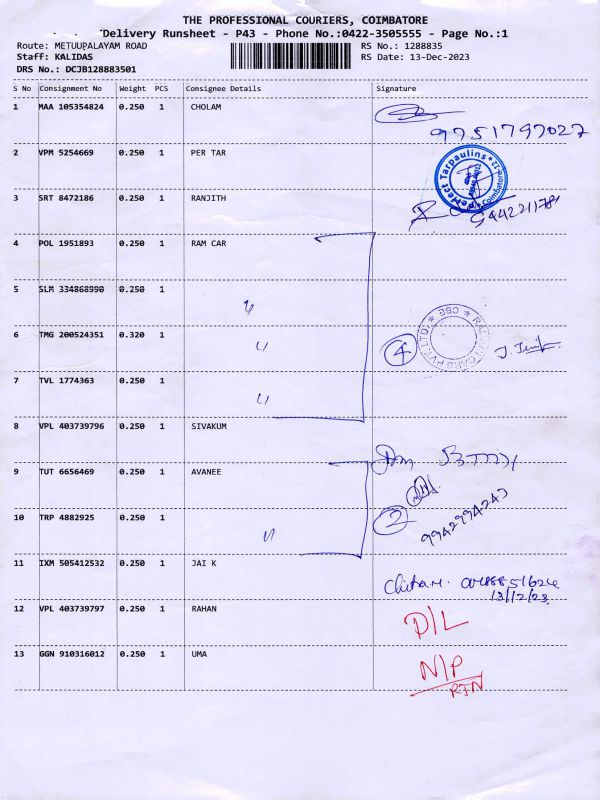 THE PROFESSIONAL COURIERS, COIMBATORE
Delivery Runsheet - P43 - Phone No.:0422-3505555 - Page No.:1
Route: METUUPALAYAM ROAD
RS No.: 1288835
Staff: KALIDAS
RS Date: 13-Dec-2023
DRS No.: DCJB128883501
S No Consignment No Weight PCS Consignee Details Signature
1 MAA 105354824 0.250 1 CHOLAM
9751797027
2 VPM 5254669 0.250 1 PER TAR
Perfect Tarpaulins
3 SRT 8472186 0.250 1 RANJITH
4 POL 1951893 0.250 1 RAM CAR
5 SLM 334868990 0.250 1
6 TMG 200524351 0.320 1 4
7 TVL 1774363 0.250 1
8 VPL 403739796 0.250 1 SIVAKUM
9 TUT 6656469 0.250 1 AVANEE
10 TRP 4882925 0.250 1 2
9942994243
11 IXM 505412532 0.250 1 JAI K
13/12/23
12 VPL 403739797 0.250 1 RAHAN D/L
13 GGN 910316012 0.250 1 UMA N/P
RTN